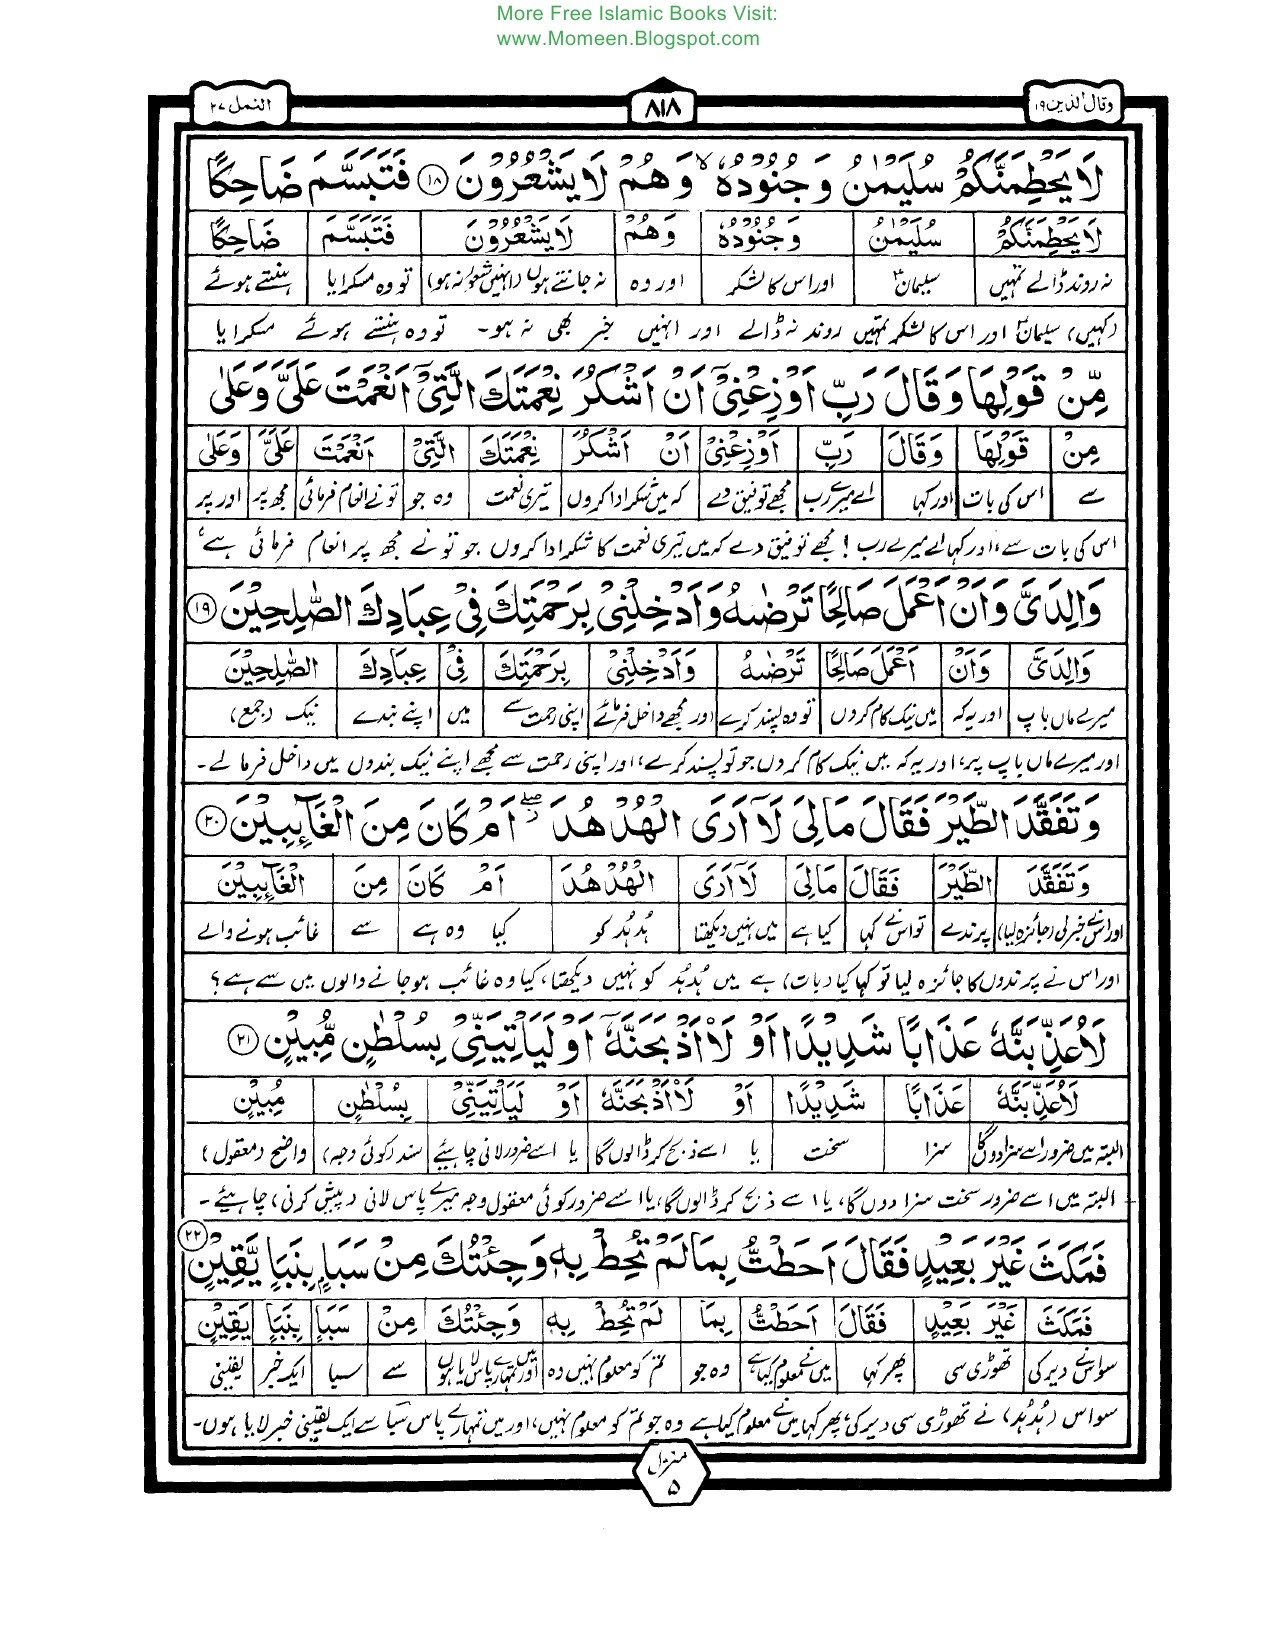 More Free Islamic Books Visit:
www.Momeen.Blogspot.com
وقال الذین ۱۹
۸۱۸
النمل ۲۷
لَا يَحْطِمَنَّكُمْ سُلَيْمٰنُ وَجُنُوْدُهٗ ۙ وَهُمْ لَا يَشْعُرُوْنَ ۱۸ فَتَبَسَّمَ ضَاحِكًا
لَا يَحْطِمَنَّكُمْ سُلَيْمٰنُ وَجُنُوْدُهٗ وَهُمْ لَا يَشْعُرُوْنَ فَتَبَسَّمَ ضَاحِكًا
نہ روند ڈالے تمہیں سلیمانؑ اور اس کا لشکر اور وہ نہ جانتے ہوں (انہیں شعور نہ ہو) تو وہ مسکرایا ہنستے ہوئے
(کہیں) سلیمانؑ اور اس کا لشکر تمہیں روند نہ ڈالے اور انہیں خبر بھی نہ ہو۔ تو وہ ہنستے ہوئے مسکرایا
مِّنْ قَوْلِهَا وَقَالَ رَبِّ اَوْزِعْنِيْٓ اَنْ اَشْكُرَ نِعْمَتَكَ الَّتِيْٓ اَنْعَمْتَ عَلَيَّ وَعَلٰى
مِنْ قَوْلِهَا وَقَالَ رَبِّ اَوْزِعْنِيْٓ اَنْ اَشْكُرَ نِعْمَتَكَ الَّتِيْٓ اَنْعَمْتَ عَلَيَّ وَعَلٰى
سے اس کی بات اور کہا اے میرے رب مجھے توفیق دے کہ میں شکر ادا کروں تیری نعمت وہ جو تو نے انعام فرمائی مجھ پر اور پر
اس کی بات سے، اور کہا اے میرے رب! مجھے توفیق دے کہ میں تیری نعمت کا شکر ادا کروں جو تو نے مجھ پر انعام فرمائی ہے،
وَالِدَيَّ وَاَنْ اَعْمَلَ صَالِحًا تَرْضٰىهُ وَاَدْخِلْنِيْ بِرَحْمَتِكَ فِيْ عِبَادِكَ الصّٰلِحِيْنَ ۱۹
وَالِدَيَّ وَاَنْ اَعْمَلَ صَالِحًا تَرْضٰىهُ وَاَدْخِلْنِيْ بِرَحْمَتِكَ فِيْ عِبَادِكَ الصّٰلِحِيْنَ
میرے ماں باپ اور یہ کہ میں نیک کام کروں تو وہ پسند کرے اور مجھے داخل فرمائے اپنی رحمت سے میں اپنے بندے نیک (جمع)
اور میرے ماں باپ پر، اور یہ کہ میں نیک کام کروں جو تو پسند کرے، اور اپنی رحمت سے مجھے اپنے نیک بندوں میں داخل فرما لے۔
وَتَفَقَّدَ الطَّيْرَ فَقَالَ مَالِيَ لَآ اَرَى الْهُدْهُدَ ۖ اَمْ كَانَ مِنَ الْغَآئِبِيْنَ ۲۰
وَتَفَقَّدَ الطَّيْرَ فَقَالَ مَالِيَ لَآ اَرَى الْهُدْهُدَ اَمْ كَانَ مِنَ الْغَآئِبِيْنَ
اور اس نے خبر لی (جائزہ لیا) پرندے تو اس نے کہا کیا ہے میں نہیں دیکھتا ہُدہُد کو کیا وہ ہے سے غائب ہونے والے
اور اس نے پرندوں کا جائزہ لیا تو کہا کیا (بات) ہے میں ہُدہُد کو نہیں دیکھتا، کیا وہ غائب ہو جانے والوں میں سے ہے؟
لَاُعَذِّبَنَّهٗ عَذَابًا شَدِيْدًا اَوْ لَاَاذْبَحَنَّهٗٓ اَوْ لَيَاْتِيَنِّيْ بِسُلْطٰنٍ مُّبِيْنٍ ۲۱
لَاُعَذِّبَنَّهٗ عَذَابًا شَدِيْدًا اَوْ لَاَاذْبَحَنَّهٗٓ اَوْ لَيَاْتِيَنِّيْ بِسُلْطٰنٍ مُبِيْنٍ
البتہ میں ضرور اسے سزا دوں گا سزا سخت یا اسے ذبح کر ڈالوں گا یا اسے ضرور لانی چاہیئے سند (کوئی وجہ) واضح (معقول)
البتہ میں اسے ضرور سخت سزا دوں گا، یا اسے ذبح کر ڈالوں گا، یا اسے ضرور کوئی معقول وجہ میرے پاس لانی (پیش کرنی) چاہیئے۔
فَمَكَثَ غَيْرَ بَعِيْدٍ فَقَالَ اَحَطْتُّ بِمَا لَمْ تُحِطْ بِهٖ وَجِئْتُكَ مِنْ سَبَاٍۢ بِنَبَاٍ يَّقِيْنٍ ۲۲
فَمَكَثَ غَيْرَ بَعِيْدٍ فَقَالَ اَحَطْتُّ بِمَا لَمْ تُحِطْ بِهٖ وَجِئْتُكَ مِنْ سَبَاٍ بِنَبَاٍ يَقِيْنٍ
سو اس نے دیر کی تھوڑی سی پھر کہا میں نے معلوم کیا ہے وہ جو تم کو معلوم نہیں وہ اور میں تمہارے پاس لایا ہوں سے سبا ایک خبر یقینی
سو اس (ہُدہُد) نے تھوڑی سی دیر کی، پھر کہا میں نے معلوم کیا ہے وہ جو تم کو معلوم نہیں، اور میں تمہارے پاس سبا سے ایک یقینی خبر لایا ہوں۔
منزل
۵